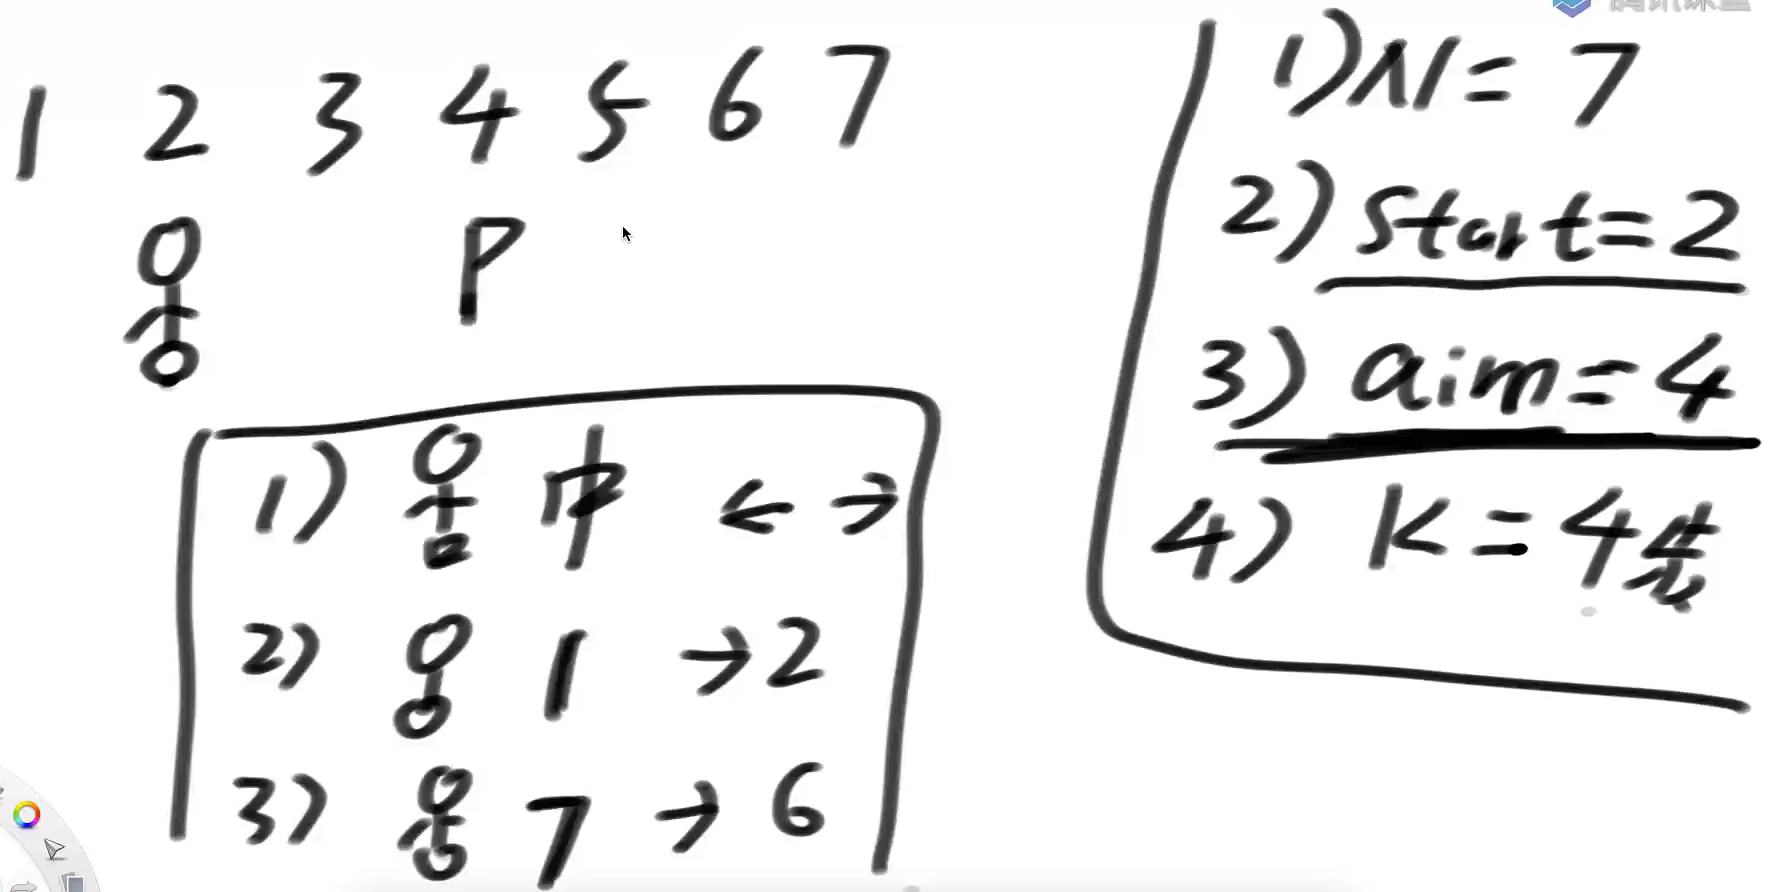 1 2 3 4 5 6 7
P
1) 中 ← →
2) 1 → 2
3) 7 → 6
腾讯课堂
1) N = 7
2) start = 2
3) aim = 4
4) K = 4步